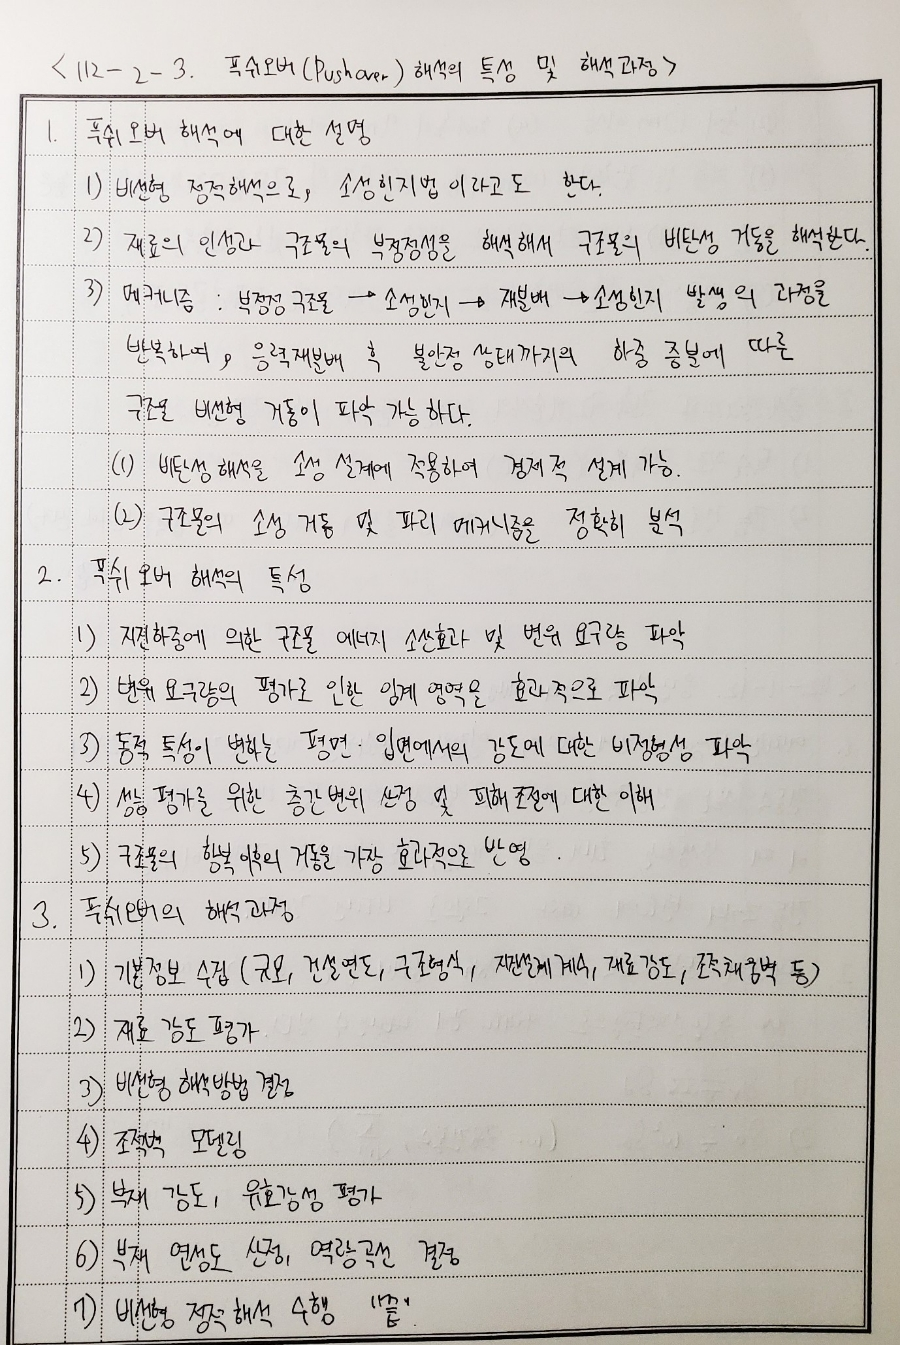 <112-2-3. 푸쉬오버(Pushover) 해석의 특성 및 해석과정>
1. 푸쉬오버 해석에 대한 설명
1) 비선형 정적해석으로, 소성힌지법이라고도 한다.
2) 재료의 인성과 구조물의 부정정성을 해석해서 구조물의 비탄성 거동을 해석한다.
3) 메커니즘 : 부정정 구조물 → 소성힌지 → 재분배 → 소성힌지 발생의 과정을
반복하여, 응력재분배 후 불안정 상태까지의 하중 증분에 따른
구조물 비선형 거동이 파악 가능하다.
(1) 비탄성 해석을 소성 설계에 적용하여 경제적 설계 가능.
(2) 구조물의 소성 거동 및 파괴 메커니즘을 정확히 분석
2. 푸쉬오버 해석의 특성
1) 지진하중에 의한 구조물 에너지 소산효과 및 변위 요구량 파악
2) 변위 요구량의 평가로 인한 임계 영역을 효과적으로 파악
3) 동적 특성이 변하는 평면·입면에서의 강도에 대한 비정형성 파악
4) 성능평가를 위한 층간변위 산정 및 피해조절에 대한 이해
5) 구조물의 항복이후의 거동을 가장 효과적으로 반영.
3. 푸쉬오버의 해석과정
1) 기본정보 수집 (규모, 건설연도, 구조형식, 지진설계계수, 재료강도, 조적채움벽 등)
2) 재료 강도 평가
3) 비선형 해석방법 결정
4) 조적벽 모델링
5) 부재 강도, 유효강성 평가
6) 부재 연성도 산정, 역량곡선 결정
7) 비선형 정적 해석 수행 "끝"